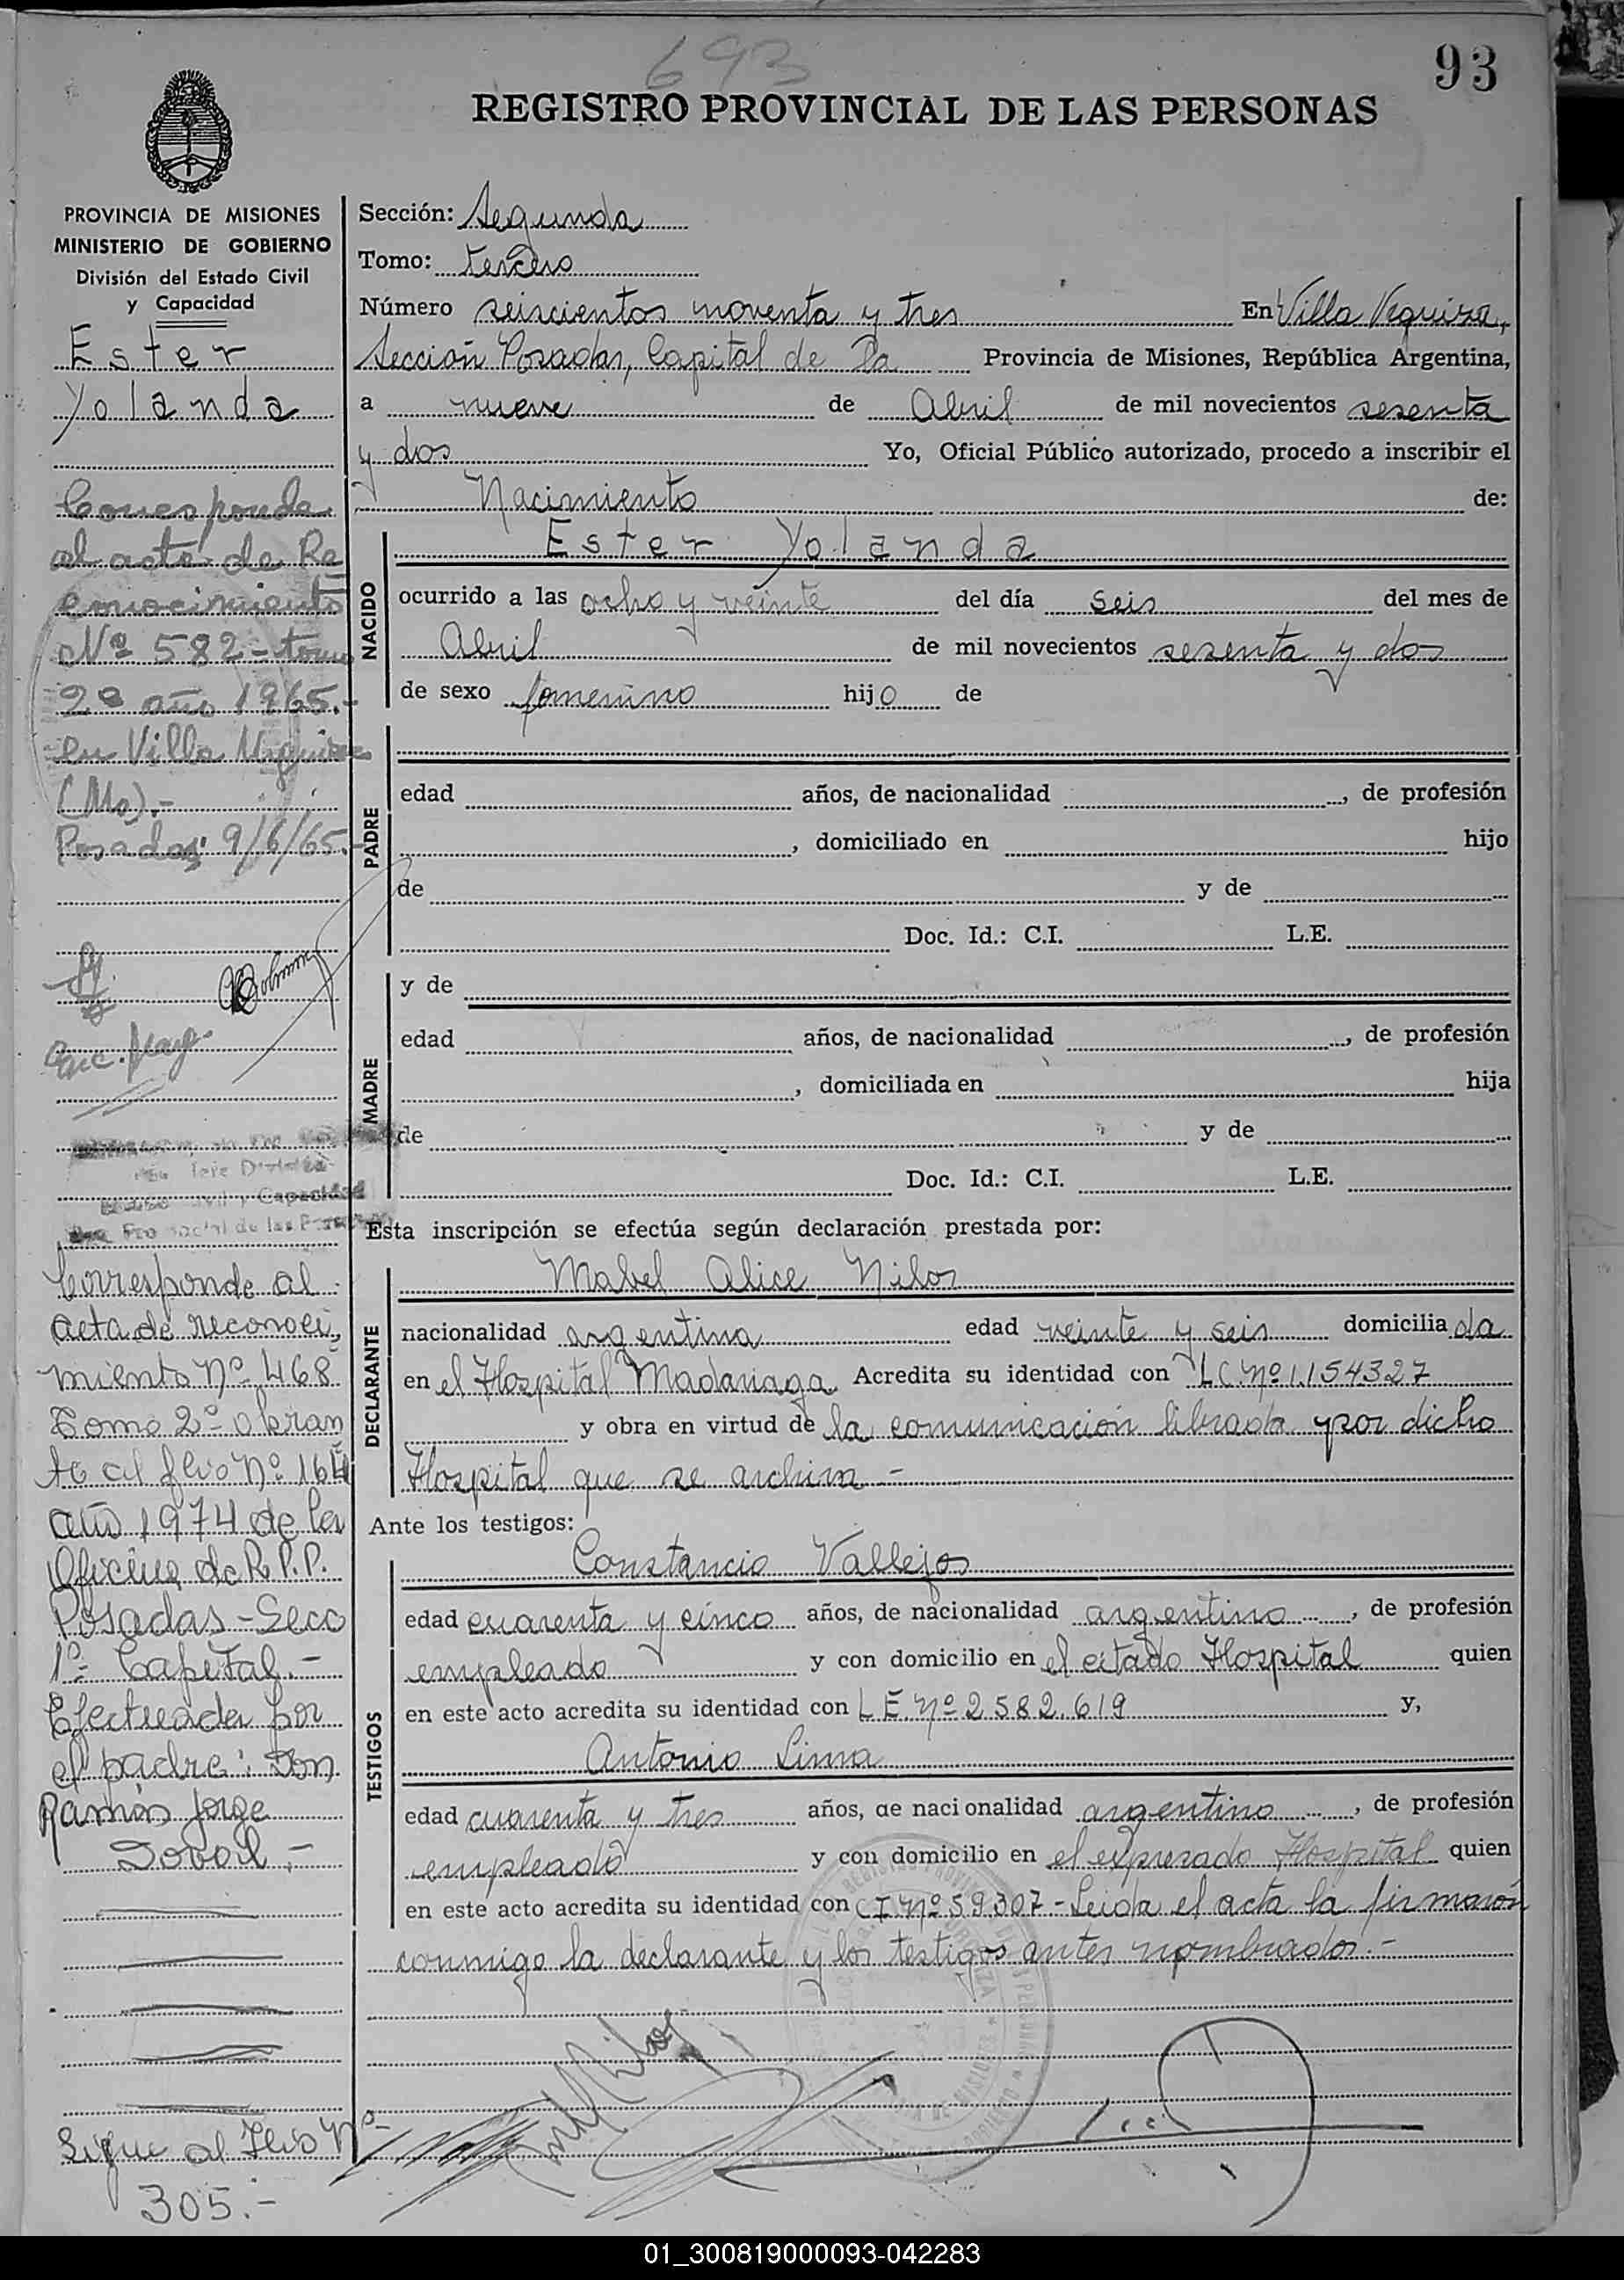 693
93
REGISTRO PROVINCIAL DE LAS PERSONAS
PROVINCIA DE MISIONES
MINISTERIO DE GOBIERNO
División del Estado Civil
y Capacidad
Ester
Yolanda
Corresponde
al acto de Re
conocimiento
Nº 582 - tomo
2º año 1965.-
en Villa Urquiza
(Ms).-
Posadas 9/6/65.-
Jefe División
Civil y Capacidad
Provincial de las Personas
Corresponde al
acta de reconoci
miento Nº 468
Tomo 2º obran
te al flio Nº 164
año 1974 de la
Oficina de R.P.P.
Posadas - Secc
1º Capital.-
Efectuada por
el padre: Don
Ramón Jorge
Doval.-
Sigue al flio Nº
305.-
Sección: Segunda
Tomo: tercero
Número seiscientos noventa y tres En Villa Vrquiza,
Sección Posadas, Capital de la Provincia de Misiones, República Argentina,
a nueve de Abril de mil novecientos sesenta
y dos Yo, Oficial Público autorizado, procedo a inscribir el
Nacimiento de:
NACIDO
Ester Yolanda
ocurrido a las ocho y veinte del día seis del mes de
Abril de mil novecientos sesenta y dos
de sexo femenino hijo de
PADRE
edad años, de nacionalidad , de profesión
, domiciliado en hijo
de y de
Doc. Id.: C.I. L.E.
MADRE
y de
edad años, de nacionalidad , de profesión
, domiciliada en hija
de y de
Doc. Id.: C.I. L.E.
Esta inscripción se efectúa según declaración prestada por:
DECLARANTE
Mabel Alice Nilos
nacionalidad argentina edad veinte y seis domiciliada
en el Hospital Madariaga Acredita su identidad con L.C. Nº 1.154327
y obra en virtud de la comunicación librada por dicho
Hospital que se archiva.-
Ante los testigos:
TESTIGOS
Constancio Vallejos
edad cuarenta y cinco años, de nacionalidad argentino , de profesión
empleado y con domicilio en el citado Hospital quien
en este acto acredita su identidad con L.E. Nº 2.582.619 y,
Antonio Lima
edad cuarenta y tres años, de nacionalidad argentino , de profesión
empleado y con domicilio en el expresado Hospital quien
en este acto acredita su identidad con C I Nº 59307 - Leida el acta la firmaron
conmigo la declarante y los testigos antes nombrados.-
01_300819000093-042283